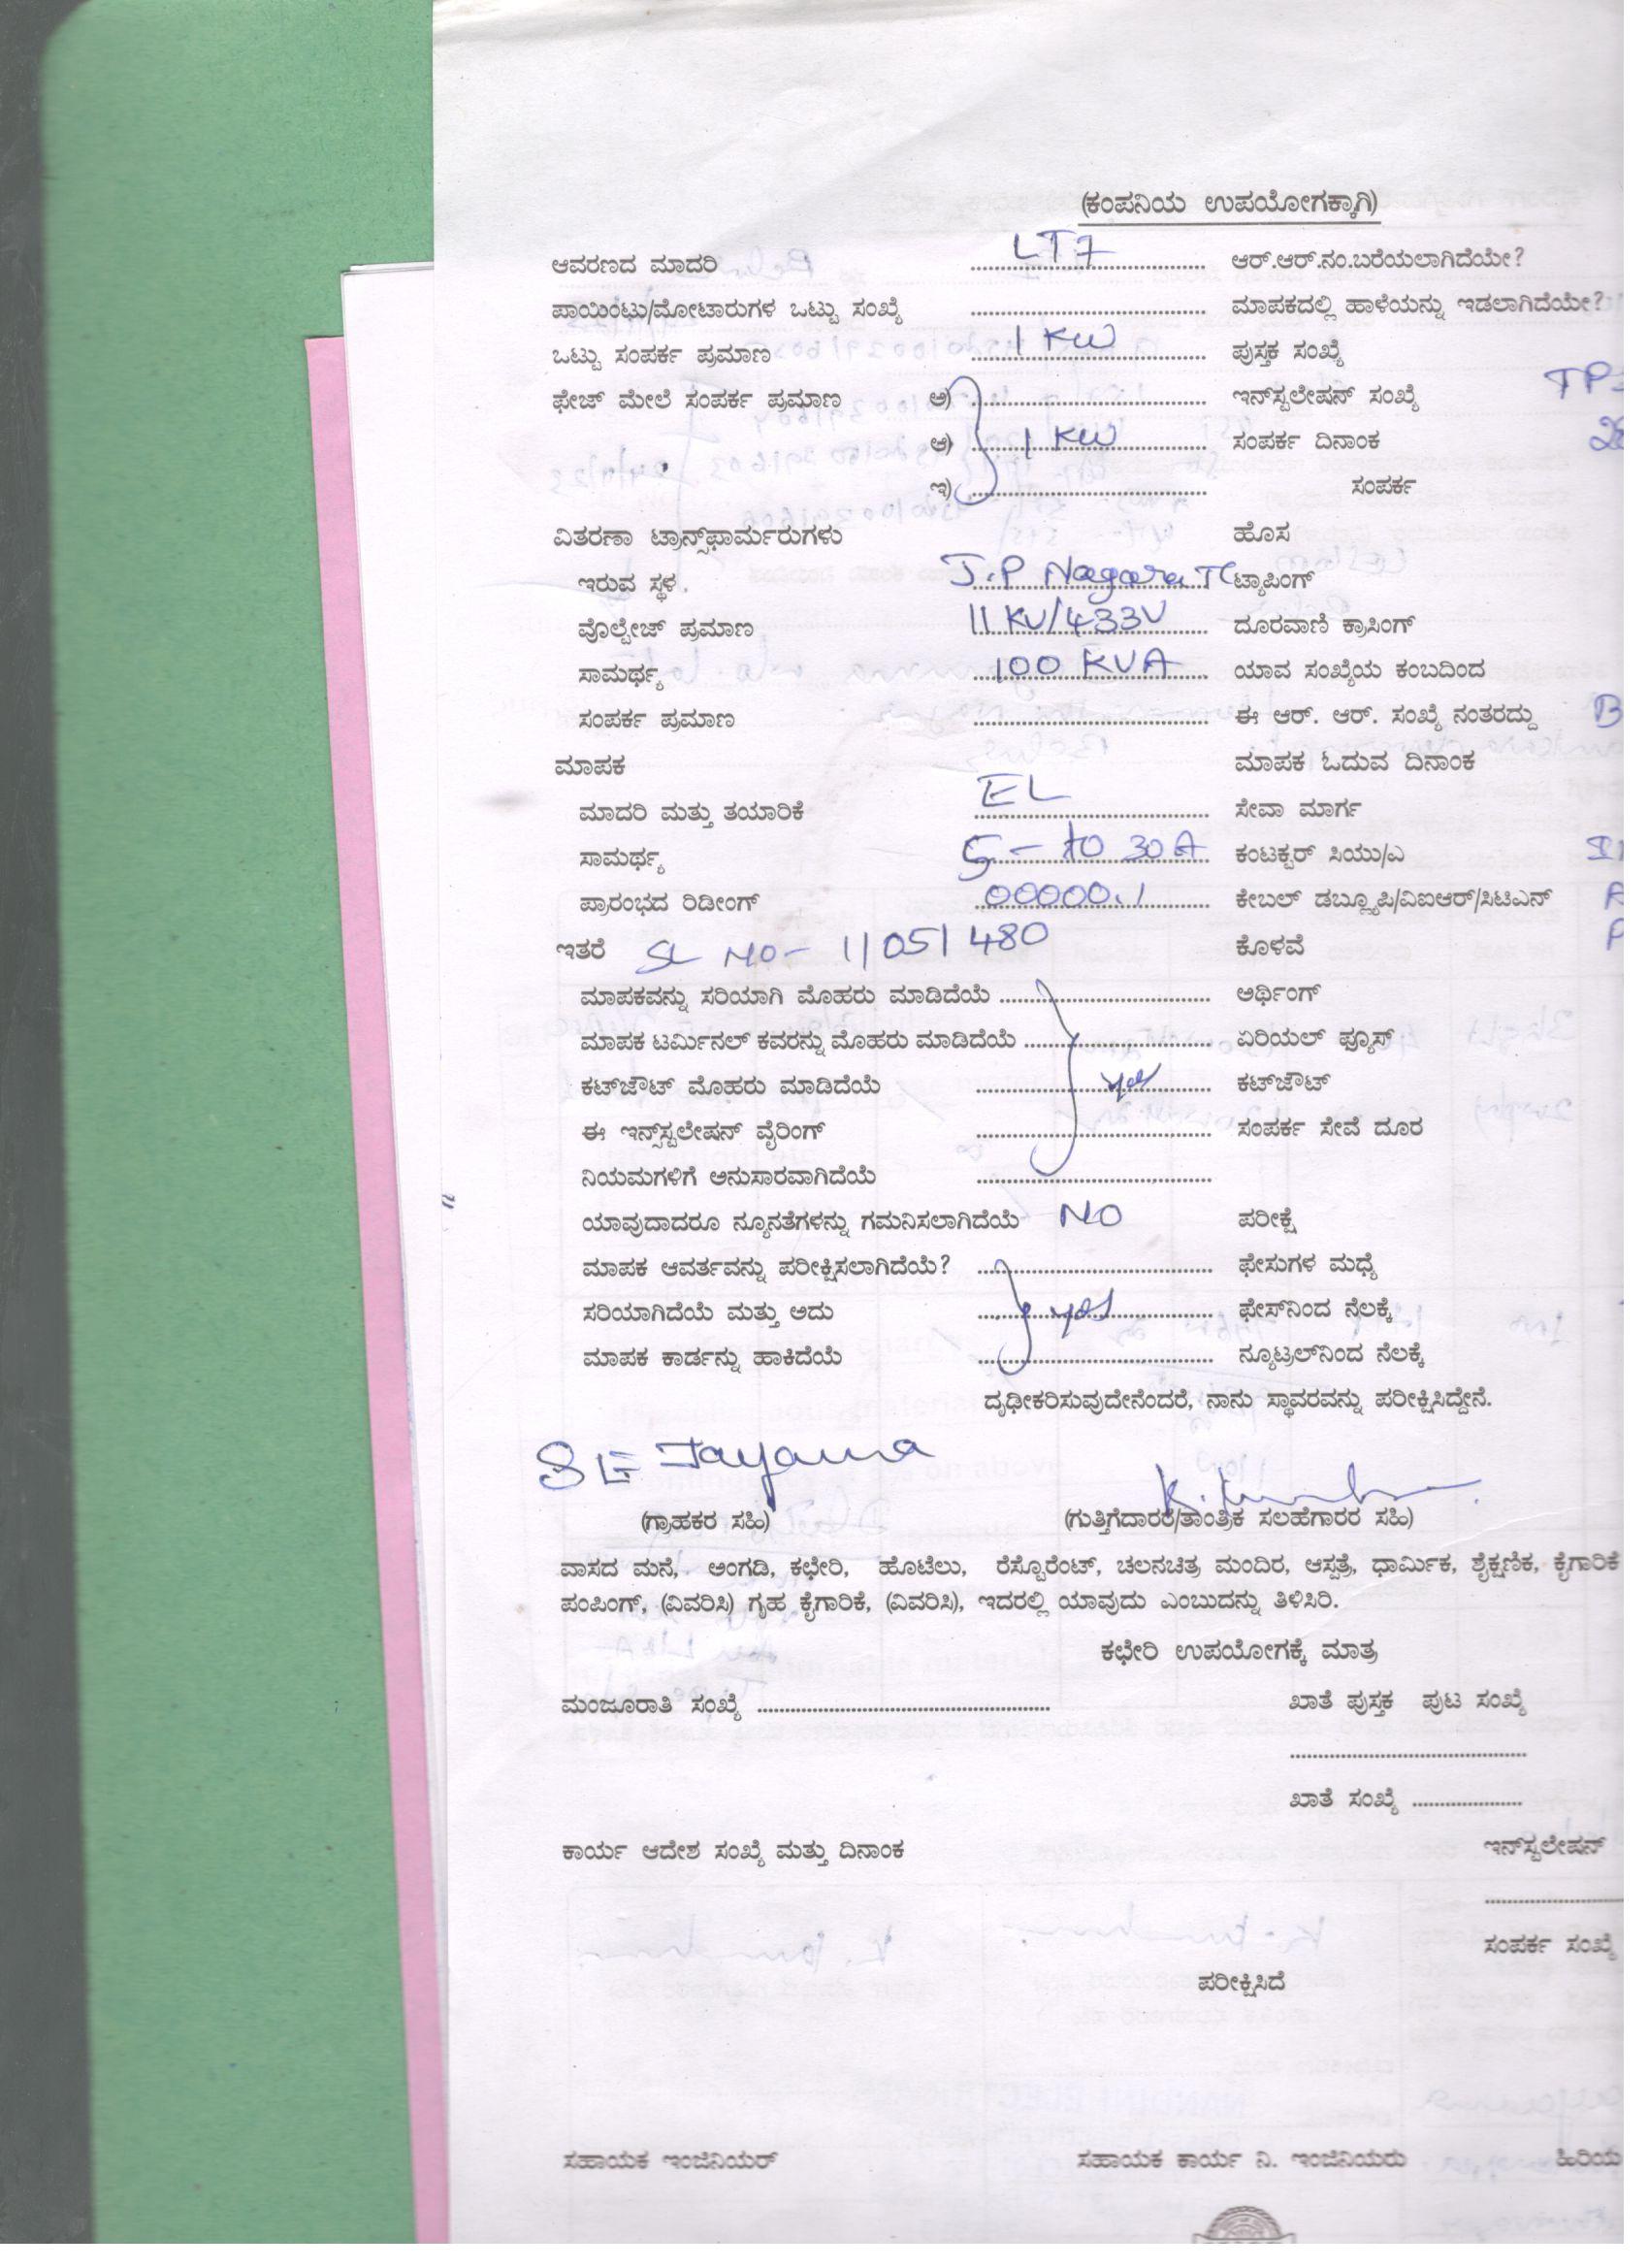 (ಕಂಪನಿಯ ಉಪಯೋಗಕ್ಕಾಗಿ)
ಆವರಣದ ಮಾದರಿ LT7 ಆರ್.ಆರ್.ನಂ.ಬರೆಯಲಾಗಿದೆಯೇ?
ಪಾಯಿಂಟು/ಮೋಟಾರುಗಳ ಒಟ್ಟು ಸಂಖ್ಯೆ ಮಾಪಕದಲ್ಲಿ ಹಾಳೆಯನ್ನು ಇಡಲಾಗಿದೆಯೇ?
ಒಟ್ಟು ಸಂಪರ್ಕ ಪ್ರಮಾಣ 1 KW ಪುಸ್ತಕ ಸಂಖ್ಯೆ
ಫೇಜ್ ಮೇಲೆ ಸಂಪರ್ಕ ಪ್ರಮಾಣ ಅ) ಇನ್‌ಸ್ಟಲೇಷನ್ ಸಂಖ್ಯೆ TP
ಆ) 1 KW ಸಂಪರ್ಕ ದಿನಾಂಕ
ಇ) ಸಂಪರ್ಕ
ವಿತರಣಾ ಟ್ರಾನ್ಸ್‌ಫಾರ್ಮರುಗಳು ಹೊಸ
ಇರುವ ಸ್ಥಳ. J.P Nagara TC ಟ್ಯಾಪಿಂಗ್
ವೊಲ್ಟೇಜ್ ಪ್ರಮಾಣ 11 KV/433V ದೂರವಾಣಿ ಕ್ರಾಸಿಂಗ್
ಸಾಮರ್ಥ್ಯ 100 KVA ಯಾವ ಸಂಖ್ಯೆಯ ಕಂಬದಿಂದ
ಸಂಪರ್ಕ ಪ್ರಮಾಣ ಈ ಆರ್. ಆರ್. ಸಂಖ್ಯೆ ನಂತರದ್ದು B
ಮಾಪಕ ಮಾಪಕ ಓದುವ ದಿನಾಂಕ
ಮಾದರಿ ಮತ್ತು ತಯಾರಿಕೆ EL ಸೇವಾ ಮಾರ್ಗ
ಸಾಮರ್ಥ್ಯ 5 - to 30 A ಕಂಟಕ್ಟರ್ ಸಿಯು/ಎ
ಪ್ರಾರಂಭದ ರಿಡೀಂಗ್ 00000.1 ಕೇಬಲ್ ಡಬ್ಲ್ಯೂಪಿ/ವಿಐಆರ್/ಸಿಟಿಎನ್
ಇತರೆ SL NO- 11051480 ಕೊಳವೆ P
ಮಾಪಕವನ್ನು ಸರಿಯಾಗಿ ಮೊಹರು ಮಾಡಿದೆಯೆ ಅರ್ಥಿಂಗ್
ಮಾಪಕ ಟರ್ಮಿನಲ್ ಕವರನ್ನು ಮೊಹರು ಮಾಡಿದೆಯೆ ಏರಿಯಲ್ ಫ್ಯೂಸ್
ಕಟ್‌ಔಟ್ ಮೊಹರು ಮಾಡಿದೆಯೆ yes ಕಟ್‌ಔಟ್
ಈ ಇನ್‌ಸ್ಟಲೇಷನ್ ವೈರಿಂಗ್ ಸಂಪರ್ಕ ಸೇವೆ ದೂರ
ನಿಯಮಗಳಿಗೆ ಅನುಸಾರವಾಗಿದೆಯೆ
ಯಾವುದಾದರೂ ನ್ಯೂನತೆಗಳನ್ನು ಗಮನಿಸಲಾಗಿದೆಯೆ NO ಪರೀಕ್ಷೆ
ಮಾಪಕ ಆವರ್ತವನ್ನು ಪರೀಕ್ಷಿಸಲಾಗಿದೆಯೆ? ಫೇಸುಗಳ ಮಧ್ಯೆ
ಸರಿಯಾಗಿದೆಯೆ ಮತ್ತು ಅದು yes ಫೇಸ್‌ನಿಂದ ನೆಲಕ್ಕೆ
ಮಾಪಕ ಕಾರ್ಡನ್ನು ಹಾಕಿದೆಯೆ ನ್ಯೂಟ್ರಲ್‌ನಿಂದ ನೆಲಕ್ಕೆ
ದೃಢೀಕರಿಸುವುದೇನೆಂದರೆ, ನಾನು ಸ್ಥಾವರವನ್ನು ಪರೀಕ್ಷಿಸಿದ್ದೇನೆ.
Jayama
(ಗ್ರಾಹಕರ ಸಹಿ) (ಗುತ್ತಿಗೆದಾರರ/ತಾಂತ್ರಿಕ ಸಲಹೆಗಾರರ ಸಹಿ)
ವಾಸದ ಮನೆ, ಅಂಗಡಿ, ಕಛೇರಿ, ಹೊಟೆಲು, ರೆಸ್ಟೊರೆಂಟ್, ಚಲನಚಿತ್ರ ಮಂದಿರ, ಆಸ್ಪತ್ರೆ, ಧಾರ್ಮಿಕ, ಶೈಕ್ಷಣಿಕ, ಕೈಗಾರಿಕೆ
ಪಂಪಿಂಗ್, (ವಿವರಿಸಿ) ಗೃಹ ಕೈಗಾರಿಕೆ, (ವಿವರಿಸಿ), ಇದರಲ್ಲಿ ಯಾವುದು ಎಂಬುದನ್ನು ತಿಳಿಸಿರಿ.
ಕಛೇರಿ ಉಪಯೋಗಕ್ಕೆ ಮಾತ್ರ
ಮಂಜೂರಾತಿ ಸಂಖ್ಯೆ ಖಾತೆ ಪುಸ್ತಕ ಪುಟ ಸಂಖ್ಯೆ
ಖಾತೆ ಸಂಖ್ಯೆ
ಕಾರ್ಯ ಆದೇಶ ಸಂಖ್ಯೆ ಮತ್ತು ದಿನಾಂಕ ಇನ್‌ಸ್ಟಲೇಷನ್
ಸಂಪರ್ಕ ಸಂಖ್ಯೆ
ಪರೀಕ್ಷಿಸಿದೆ
ಸಹಾಯಕ ಇಂಜಿನಿಯರ್ ಸಹಾಯಕ ಕಾರ್ಯ ನಿ. ಇಂಜಿನಿಯರು ಹಿರಿಯ